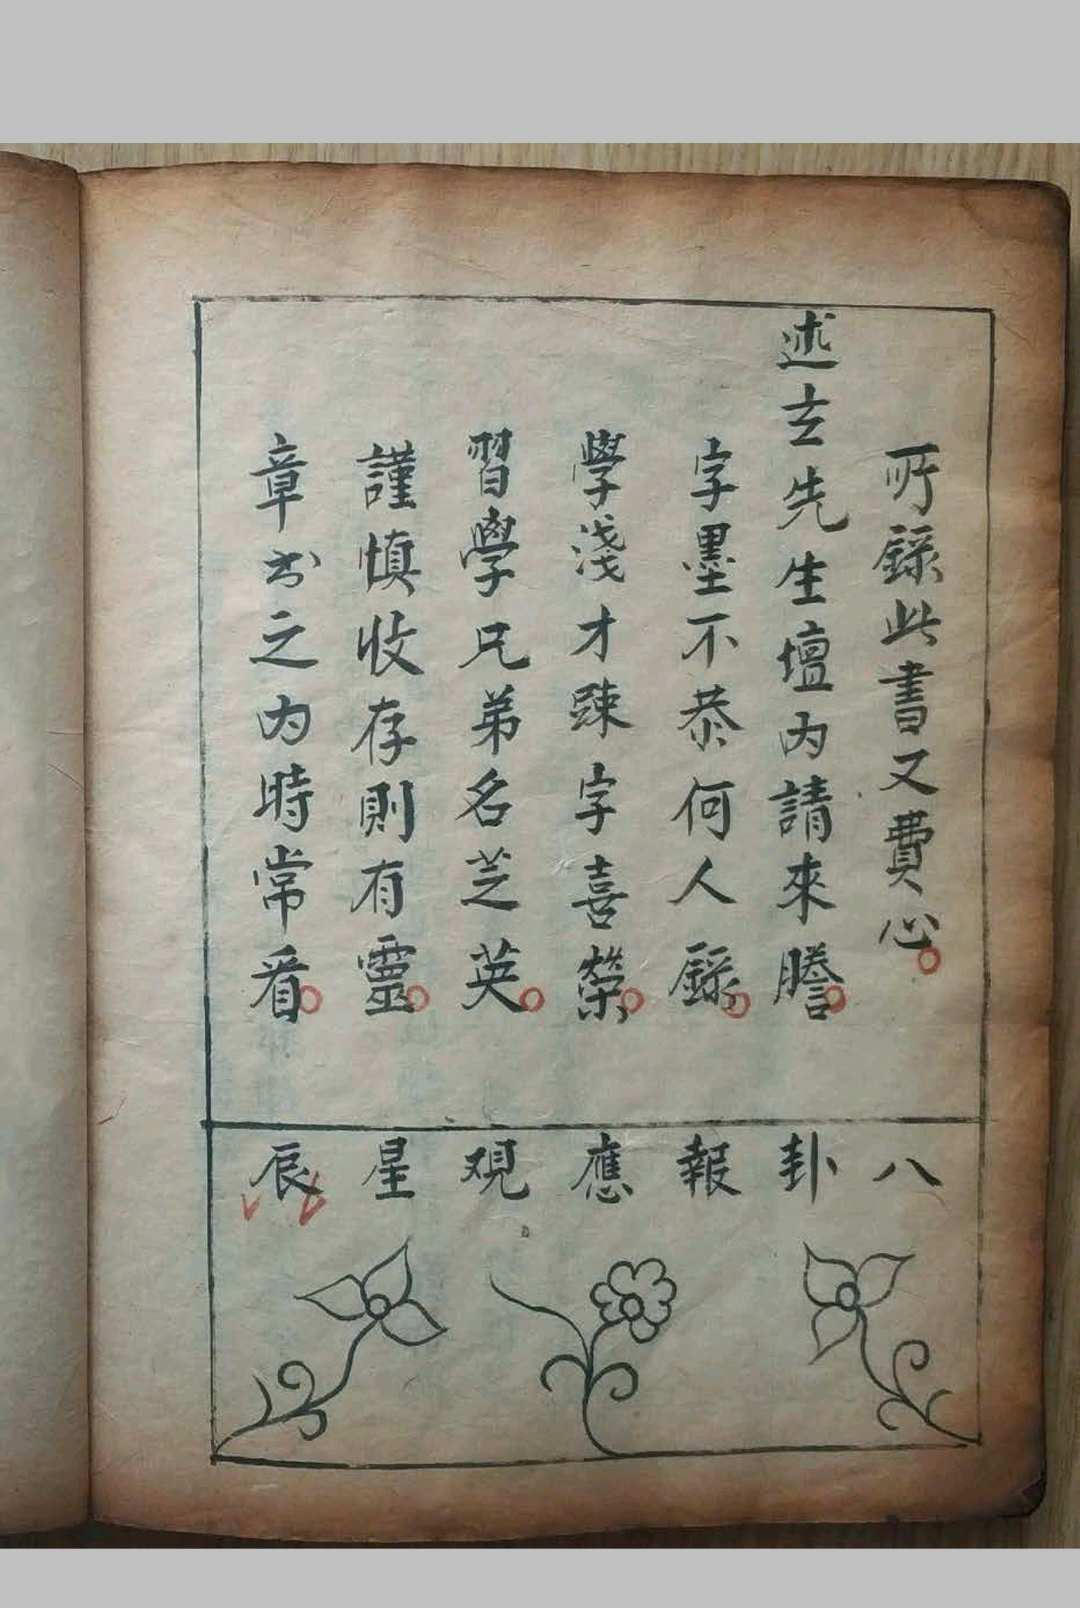 所錄此書又費心
述玄先生壇內請來謄
字墨不恭何人錄
學淺才踈字喜榮
習學兄弟名芝英
謹慎收存則有靈
章书之內時常看
八卦報應观星辰